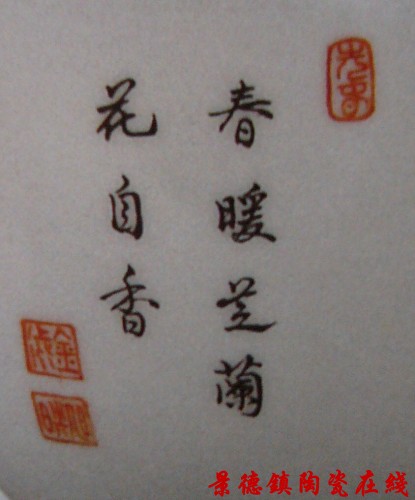 春暖芝蘭
花自香
景德鎮陶瓷在线